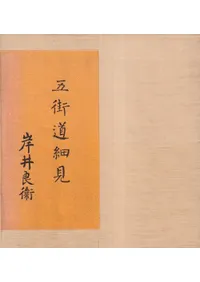 五街道細見
岸井良衛